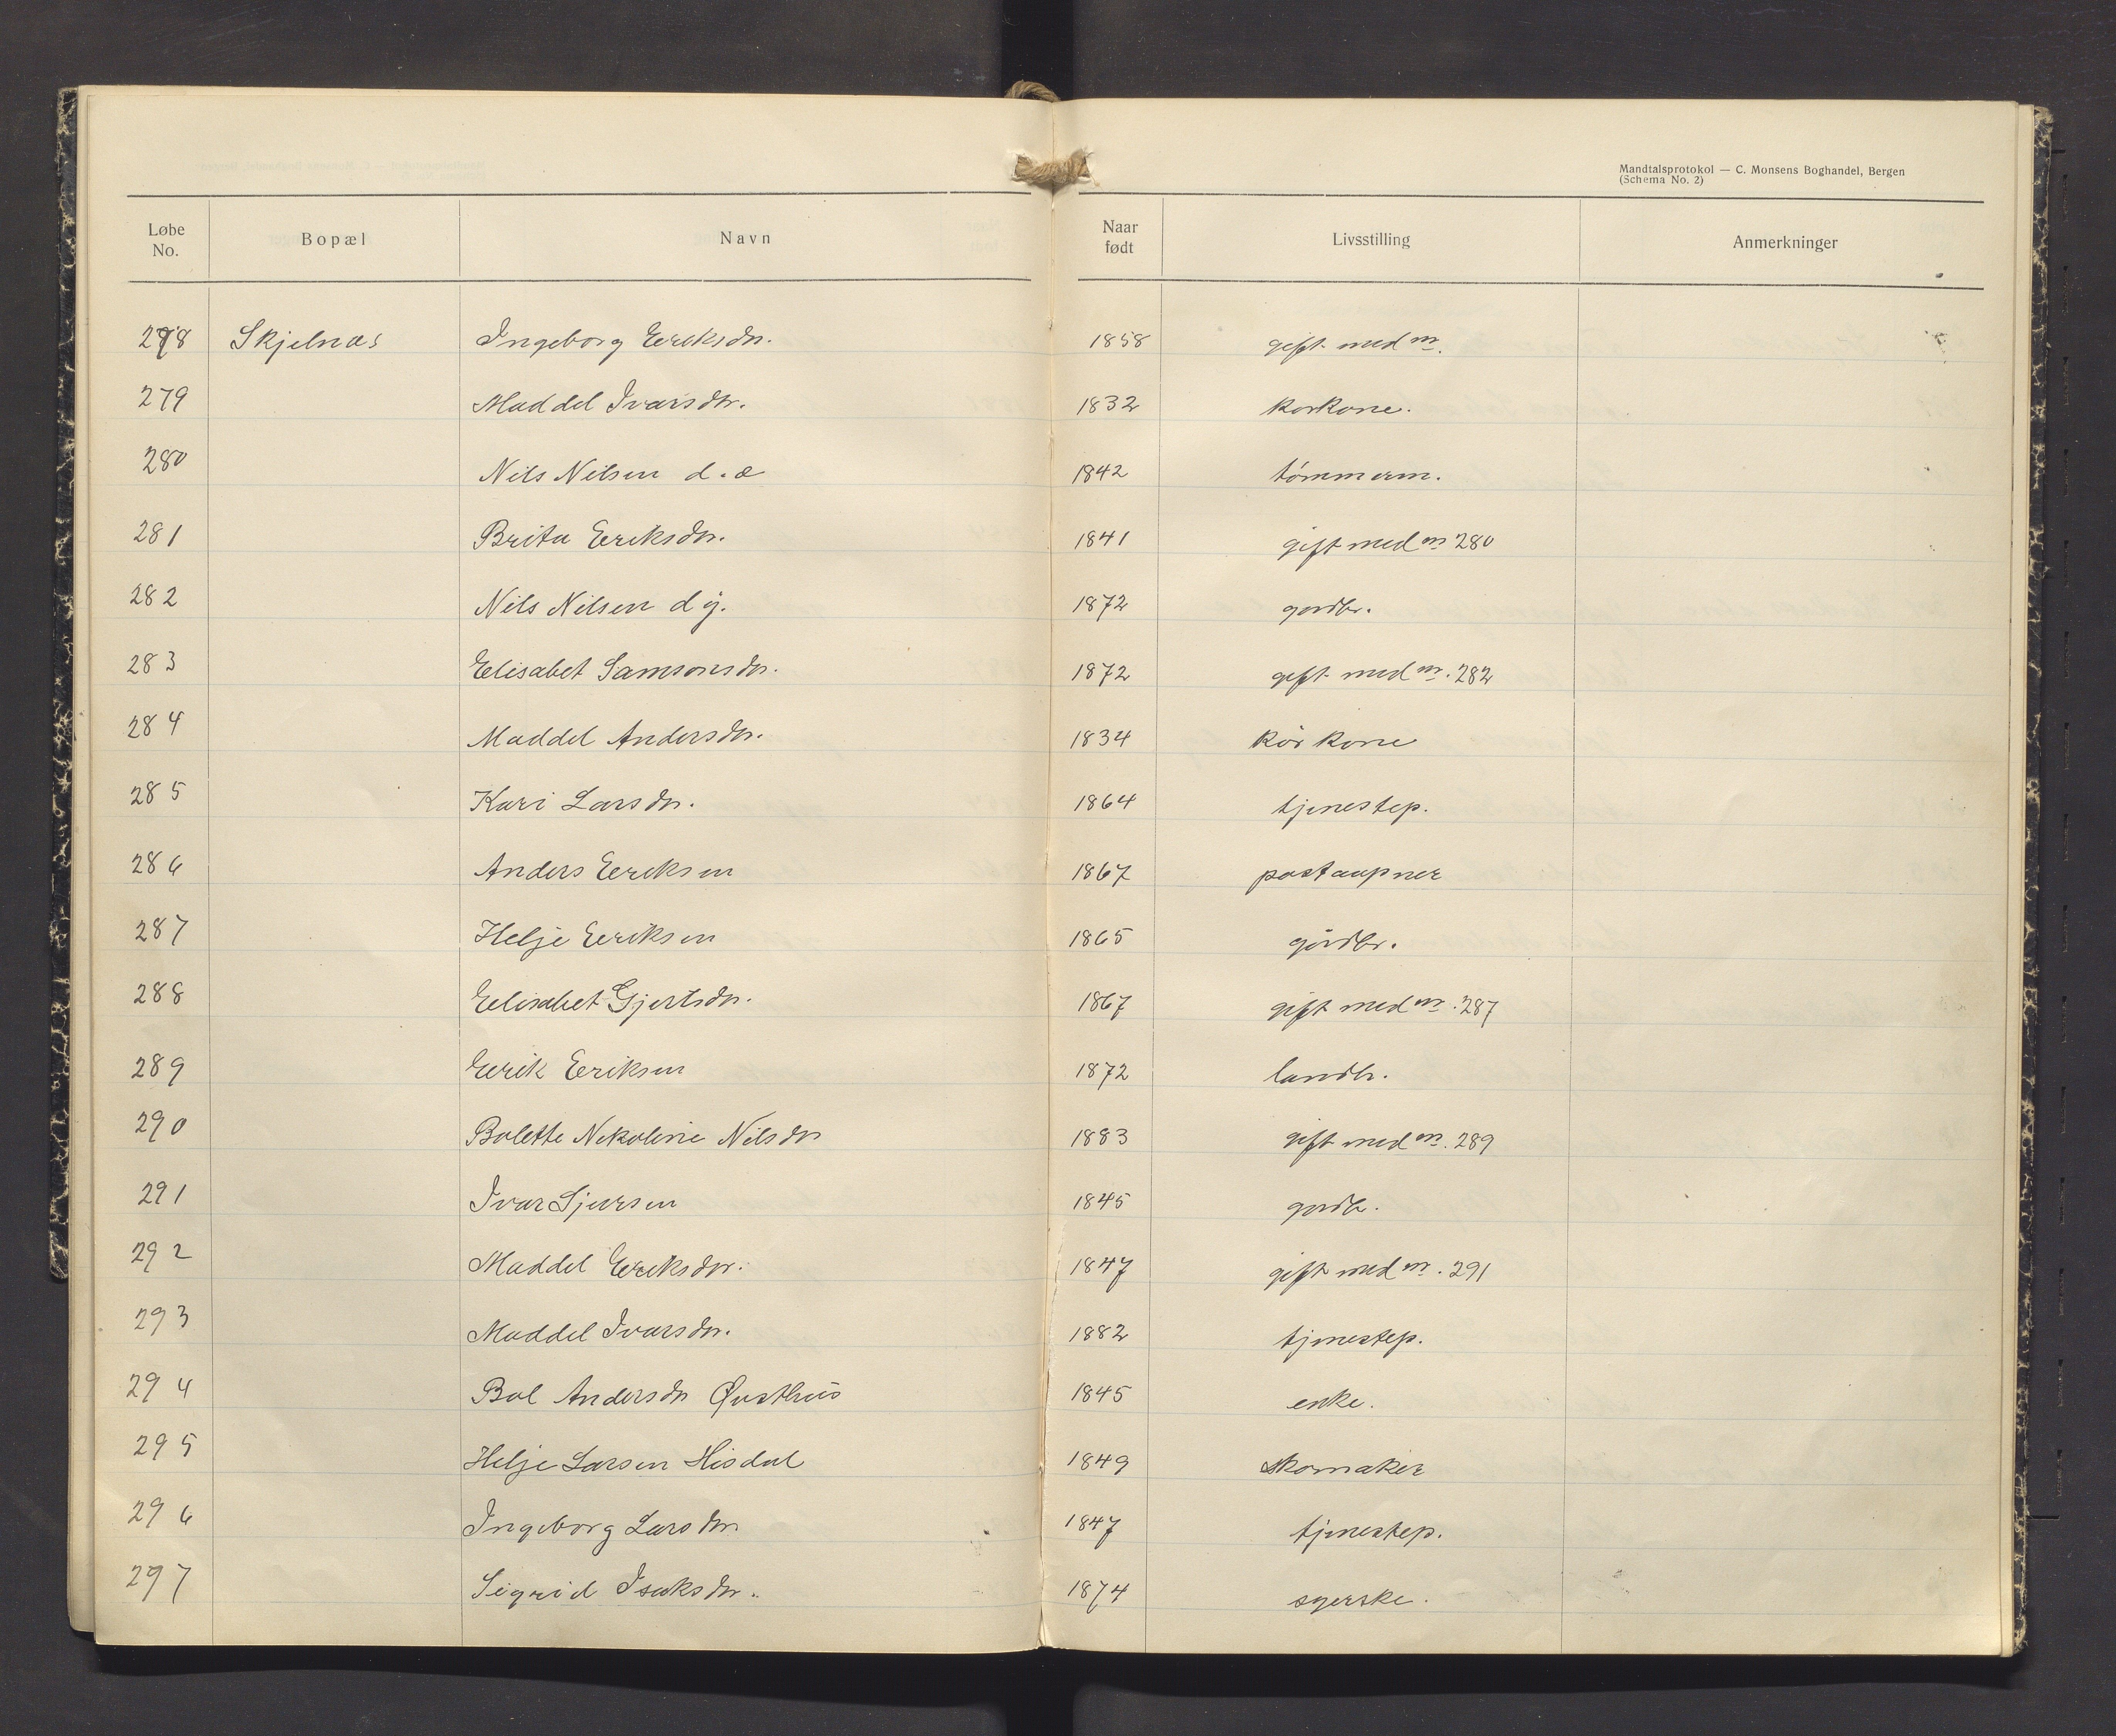 Mandtalsprotokol — C. Monsens Boghandel, Bergen
(Schema No. 2)
Løbe No. Bopæl Navn Naar født Livsstilling Anmerkninger
278 Skjelnæs Ingeborg Eeriksdr. 1858 gift med m.
279 Maddel Ivarsdtr. 1832 korkone.
280 Nils Nilsen d.æ 1842 tömmerm.
281 Brita Eeriksdr. 1841 gift med m 280
282 Nils Nilsen d y. 1872 gardbr.
283 Elisabet Samsonsdr. 1872 gift med m. 282
284 Maddel Andersdr. 1834 kår kone
285 Kari Larsdr. 1864 tjenestep.
286 Anders Eeriksen 1867 postaapner
287 Helje Eeriksen 1865 gårdbr.
288 Elisabet Gjertsdr. 1867 gift med m. 287
289 Eerik Eeriksen 1872 landh.
290 Bolette Nikoline Nilsdr 1883 gift med m. 289
291 Ivar Sjursen 1845 gardbr.
292 Maddel Eeriksdr. 1847 gift med m. 291
293 Maddel Ivarsdr. 1882 tjenestep.
294 Bol Andersdr Øvsthus 1845 enke.
295 Helje Larsen Hisdal 1849 skomaker
296 Ingeborg Larsdr. 1847 tjenestep.
297 Sigrid Isaksdr. 1874 syerske.